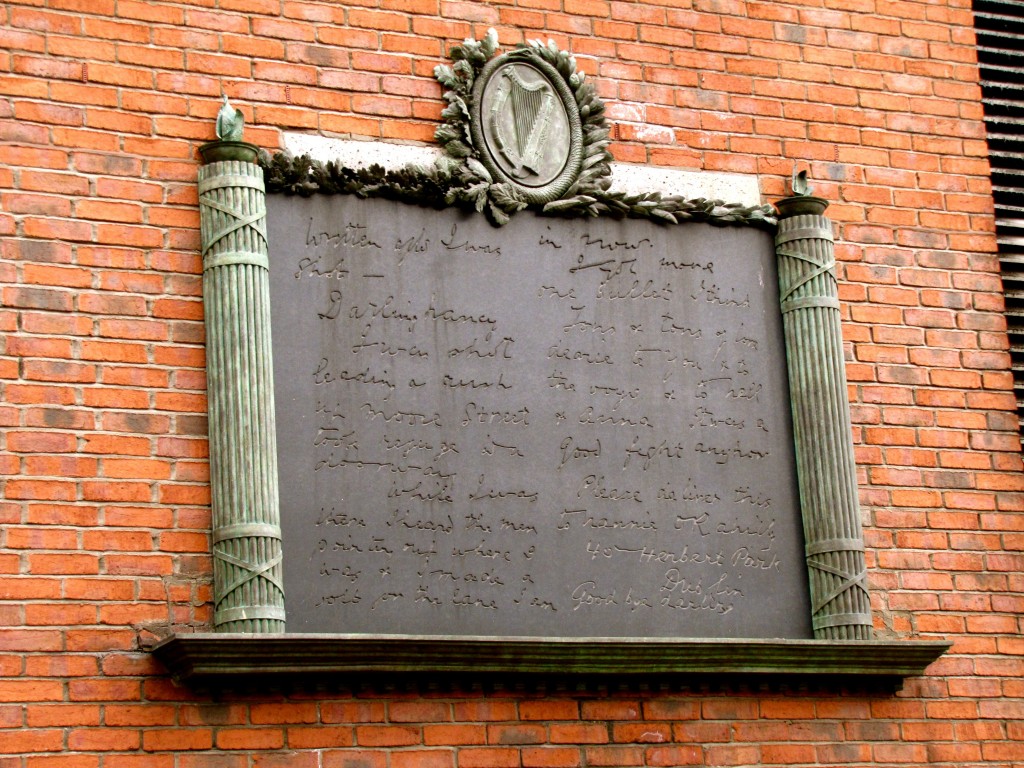 Written after I was
shot —
Darling Nancy
I was shot
leading a rush
up Moore Street
took refuge in a
doorway
While I was
there I heard the men
pointing out where I
was & I made a
bolt for the lane I am
in now.
I got more
one bullet I think
Tons & tons of love
dearie to you & to
the boys & to Nell
& Anna It was a
Good fight anyhow
Please deliver this
to Nannie O'Rahilly
40 Herbert Park
Dublin
Good bye Darling